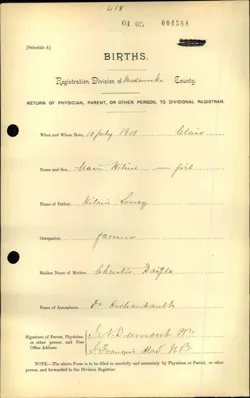 418
01 05 004588
[Schedule A]
BIRTHS.
Registration Division of Madawaska County.
RETURN OF PHYSICIAN, PARENT, OR OTHER PERSON, TO DIVISIONAL REGISTRAR.
When and Where Born, 10 July 1901 Clair
Name and Sex,
Name of Father,
Occupation farmer
Maiden Name of Mother Daigle
Name of Accoucheur, Dr Archambault
Signature of Parent, Physician,
or other person, and Post
Office Address.
St François Mad N B
NOTE.—The above Form is to be filled carefully and accurately by Physician, Parent, or
other person, and forwarded to the Division Registrar.